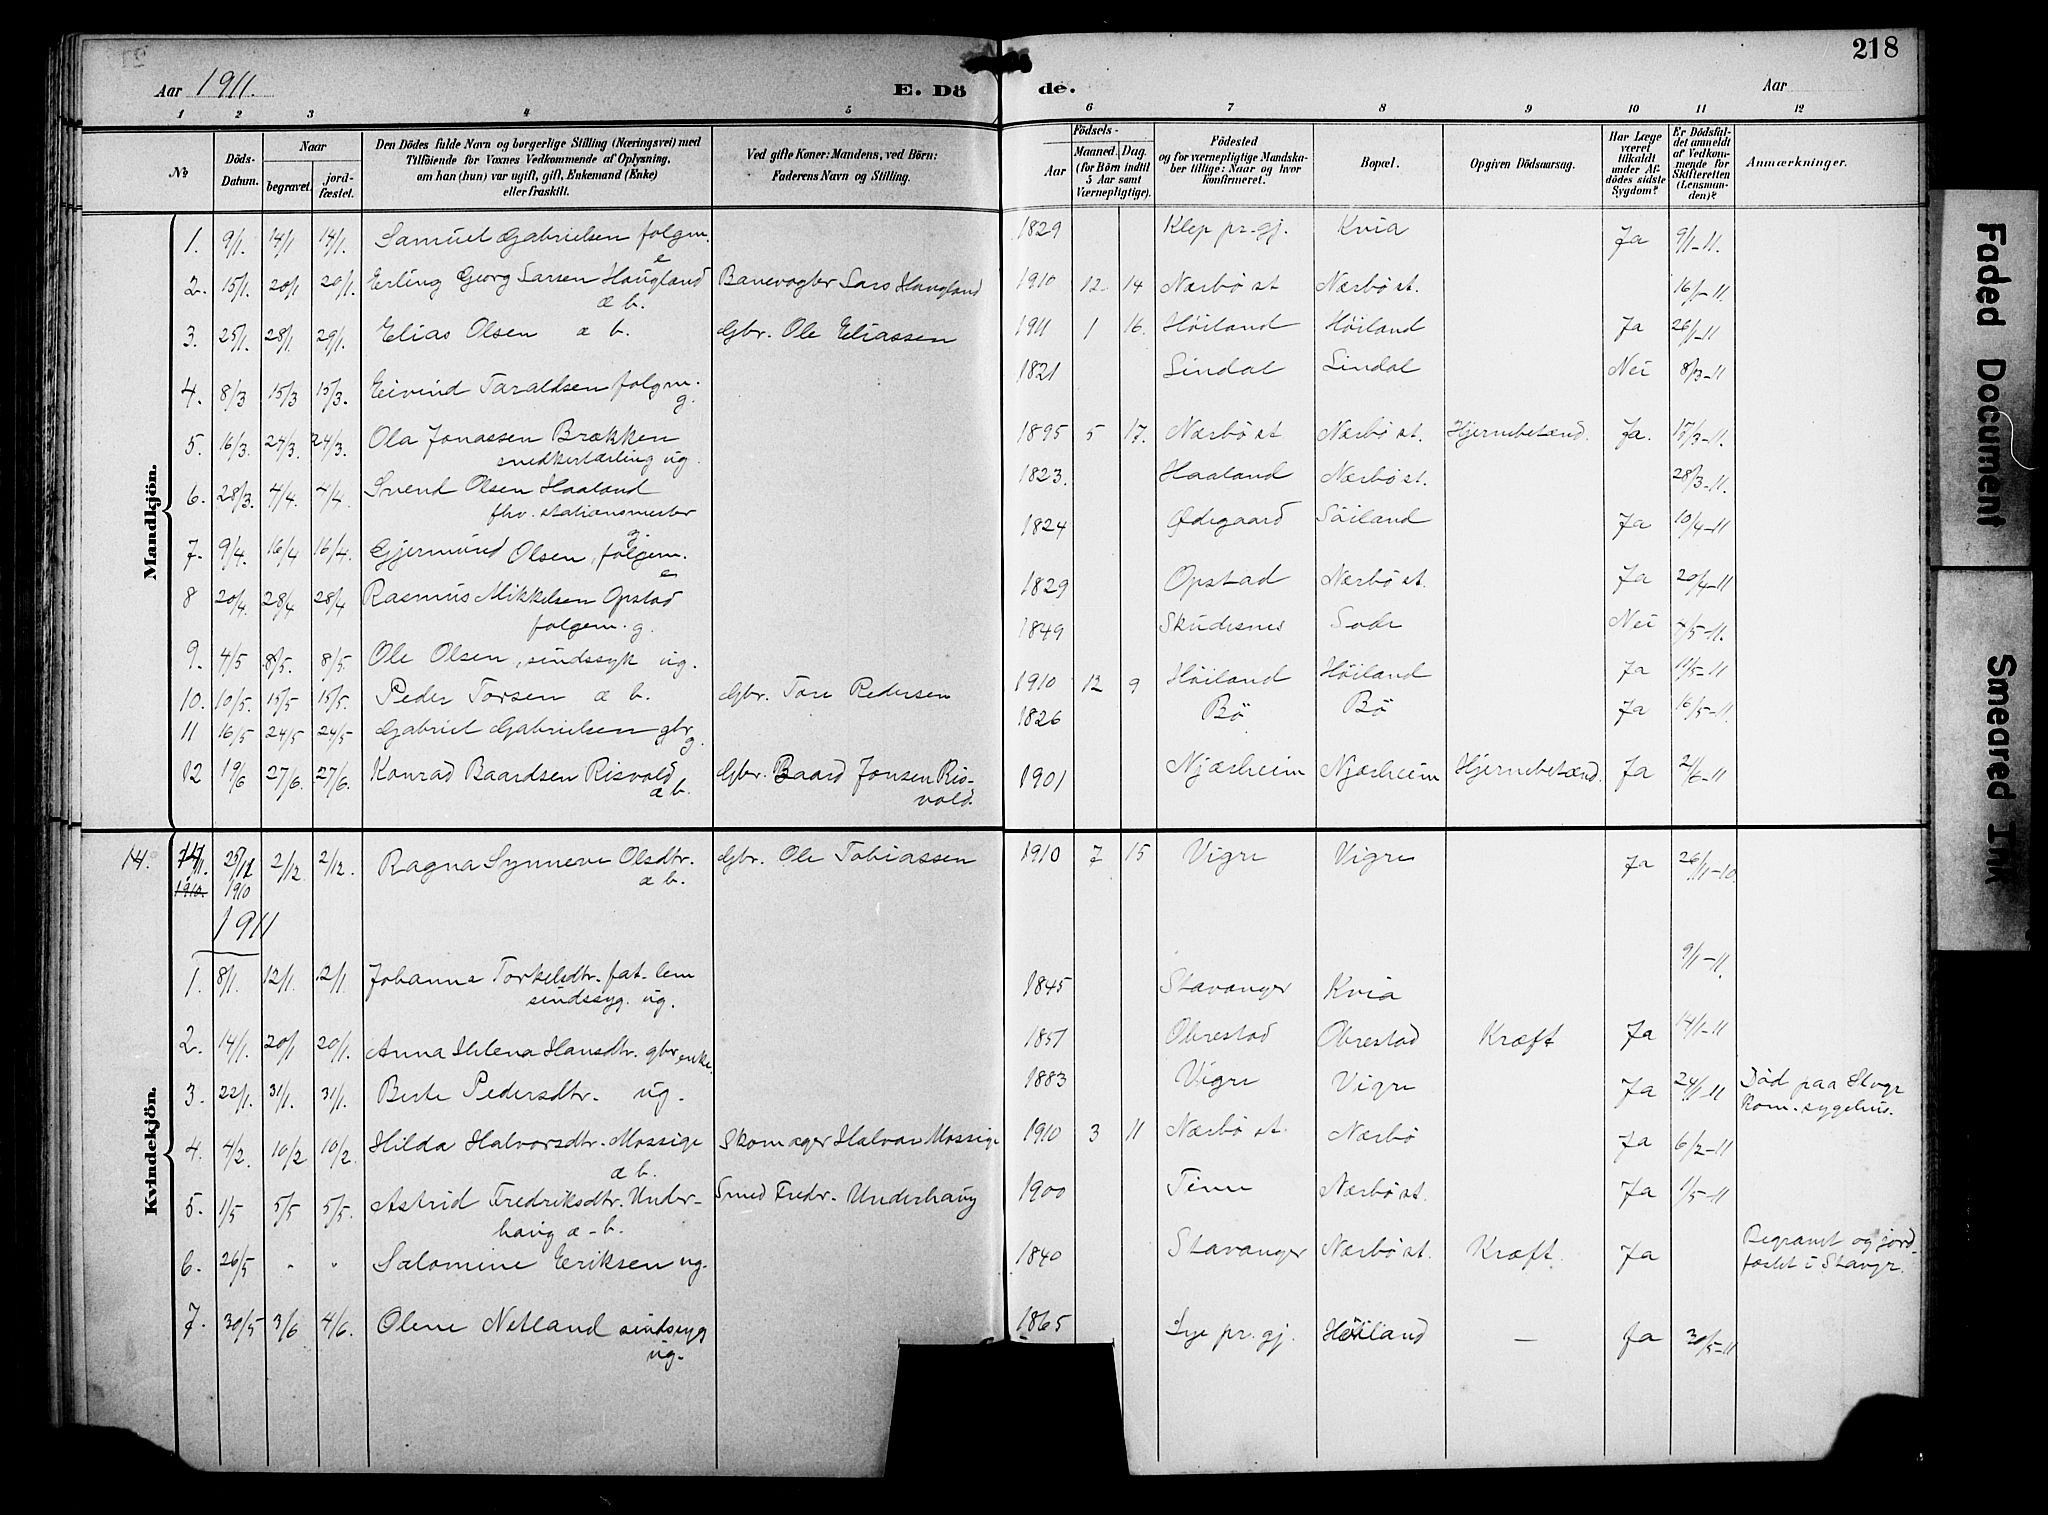 218
Aar 1911. E. Dö de. Aar
1 2 3 4 5 6 7 8 9 10 11 12
№ Döds-Datum. Naar begravet. jord-fæstet. Den Dödes fulde Navn og borgerlige Stilling (Næringsvei) med Tilföiende for Voxnes Vedkommende af Oplysning, om han (hun) var ugift, gift, Enkemand (Enke) eller fraskilt. Ved gifte Koner: Mandens, ved Börn: Faderens Navn og Stilling. Födsels- Aar Maaned. Dag. (for Börn indtil 5 Aar samt Værnepligtige). Födested og for værnepligtige Mandska-ber tillige: Naar og hvor konfirmeret. Bopæl. Opgiven Dödsaarsag. Har Læge været tilkaldt under Af-dödes sidste Sygdom? Er Dödsfal-det anmeldt af Vedkom-mende for Skifteretten (Lensman-den)? Anmærkninger.
Mandkjön.
1. 9/1. 14/1 14/1. Samuel Gabrielsen folgm. e 1829 Klep pr.gj. Kvia Ja 9/1-11.
2. 15/1. 20/1 20/1. Erling Georg Larsen Haugland æ b. Banevogter Lars Haugland 1910 12 14 Nærbö st Nærbö st. 16/1-11.
3. 25/1. 28/1. 29/1. Elias Olsen æ b. Gbr. Ole Eliassen 1911 1 16. Höiland Höiland Ja 26/1-11
4. 8/3 15/3 15/3. Eivind Taraldsen folgm. g. 1821 Lindal Lindal Nei 8/3-11
5. 16/3. 24/3. 24/3. Ola Jonassen Brækken snedkerlærling ug. 1895 5 17. Nærbö st Nærbö st. Hjernebetænd. Ja. 15/3-11.
6. 28/3. 4/4. 4/4. Svend Olsen Haaland fhv. stationsmester g. 1823. Haaland Nærbö st. 28/3-11.
7. 9/4. 16/4 16/4. Gjermund Olsen, folgem. e 1824 Ødegaard Söiland Ja 10/4-11
8 20/4. 28/4 28/4 Rasmus Mikkelsen Opstad folgem. g. 1829 Opstad Nærbö st. Ja 20/4-11
9. 4/5 8/5. 8/5. Ole Olsen, sindssyk ug. 1849 Skudesnes Nei 4/5-11.
10. 10/5. 15/5 15/5. Peder Torsen æ b. Gbr. Tore Pedersen 1910 12 9 Höiland Höiland Ja 11/5-11
11 16/5 24/5 24/5 Gabriel Gabrielsen gbr g. 1826 Bö Bö Ja 16/5-11.
12 19/6 27/6. 27/6. Konrad Baardsen Risvold æ b. Gbr. Baard Jonsen Ris-vold. 1901 Njærheim Njærheim Hjernebetænd. Ja 21/6-11
Kvindekjön.
14. 1910. 25/11 1910 2/12 2/12. Ragna Synneve Olsdtr. æ b. Gbr. Ole Tobiassen 1910 7 15 Vigre Vigre Ja 26/11-10.
1911
1. 8/1. 12/1. 12/1. Johanne Torkelsdtr. fat. lem sindssyg. ug. 1845 Stavanger Kvia 9/1-11.
2. 14/1. 20/1 20/1. Anna Helena Hansdtr. gbr. enke. 1851 Obrestad Obrestad Kræft Ja 14/1-11
3. 22/1. 31/1. 31/1. Berte Pedersdtr. ug. 1883 Vigre Vigre Ja 24/1-11 Död paa Stvgr Kom. sygehus.
4. 4/2. 10/2 10/2. Hilda Halvorsdtr. Mossige æ b. Skomager Halvor Mossige 1910 3 11 Nærbö st. Nærbö Ja 6/2-11
5. 1/5 5/5 5/5. Astrid Fredriksdtr. Under-haug æ-b. Smed Fredr. Underhaug 1900 Time Nærbö st. Ja 1/5-11
6. 26/5 " " Salomine Eriksen ug. 1840 Stavanger Nærbö st. Kræft. Ja Begravet og jord-fæstet i Stavgr.
7. 30/5 3/6 4/6. Olene Netland sindssyg ug. 1865 Lye pr. gj. Höiland — Ja 30/5-11
Faded Document
Smeared Ink